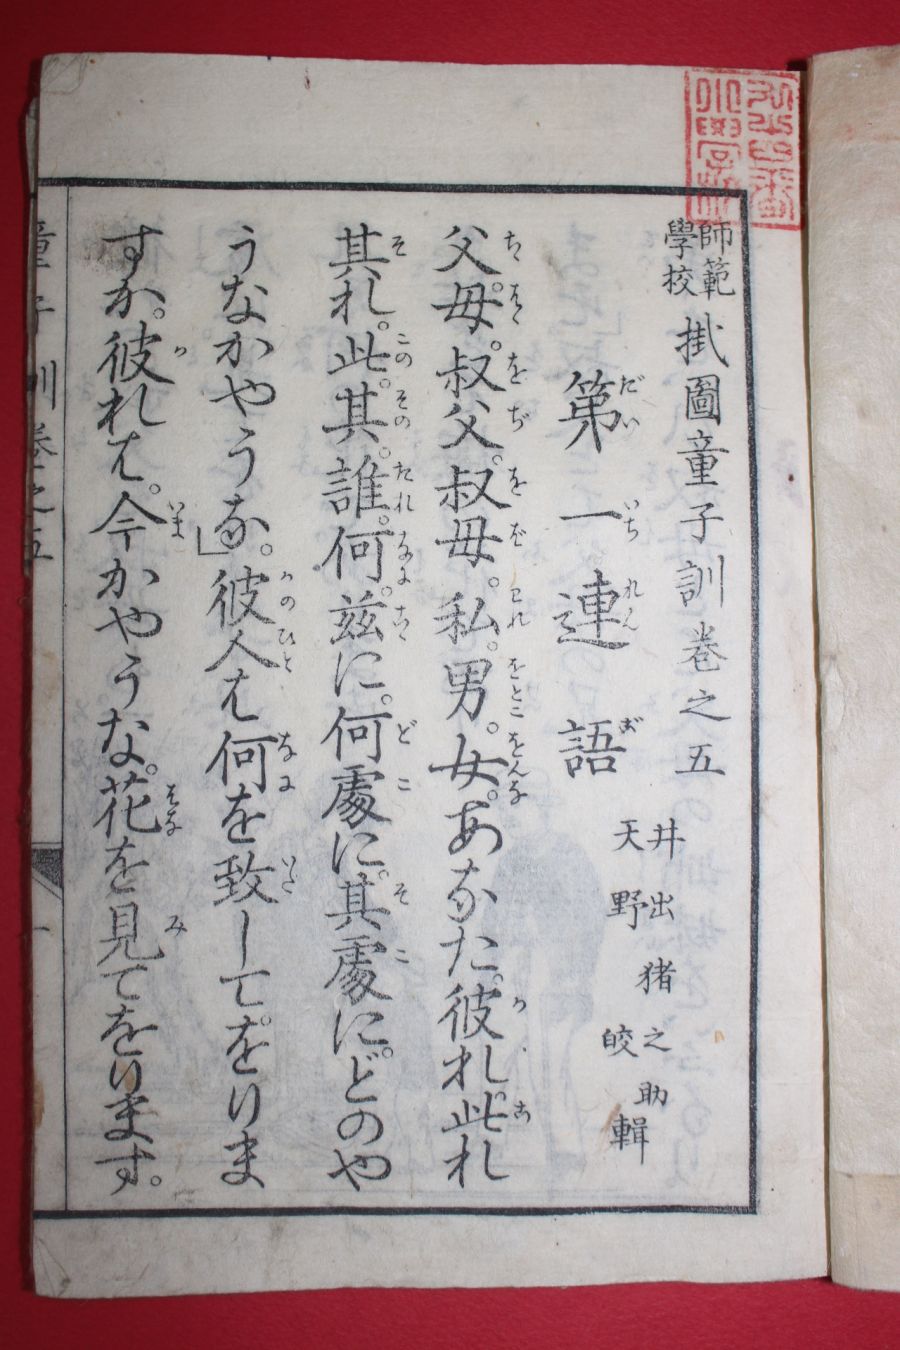 師範學校 掛圖童子訓卷之五
井出猪之助
天野皎 輯
第一連語
父母。叔父。叔母。私。男。女。あなた。彼れ。此れ
其れ。此。其。誰。何。茲に。何處に。其處に。どのや
うなかやうな。」彼人は何を致してをりま
すか。彼れは。今かやうな。花を見てをります。
童子訓 卷之五 一